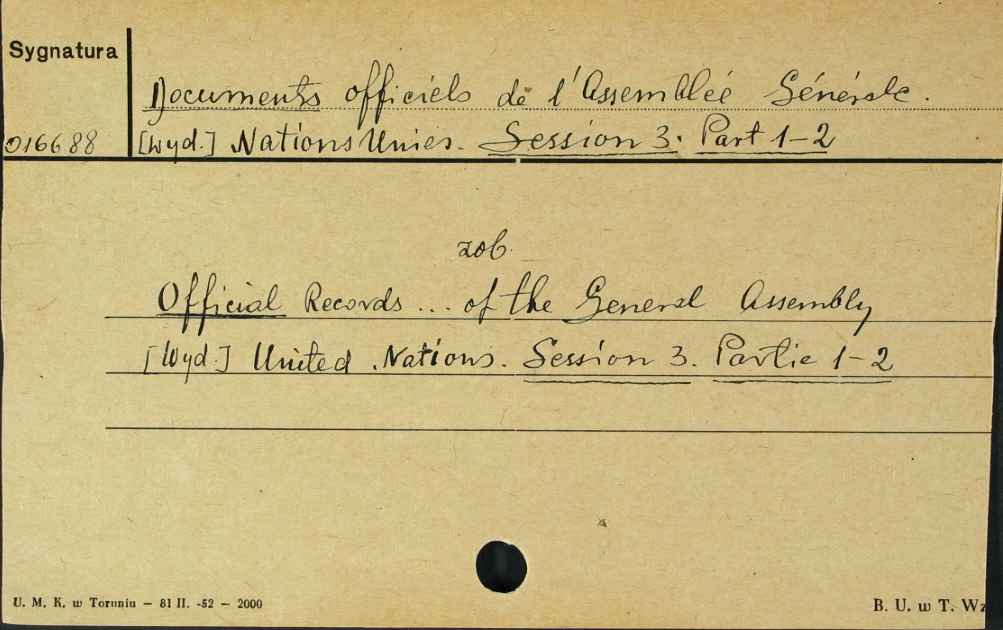 Sygnatura
Documents officiels de l'Assemblée Générale.
016688 [Wyd.] Nations Unies. Session 3. Part 1-2
zob.
Official Records ... of the General Assembly
[Wyd.] United Nations. Session 3. Partie 1-2
U. M. K. w Toruniu — 81 II. -52 — 2000 B. U. w T. Wz